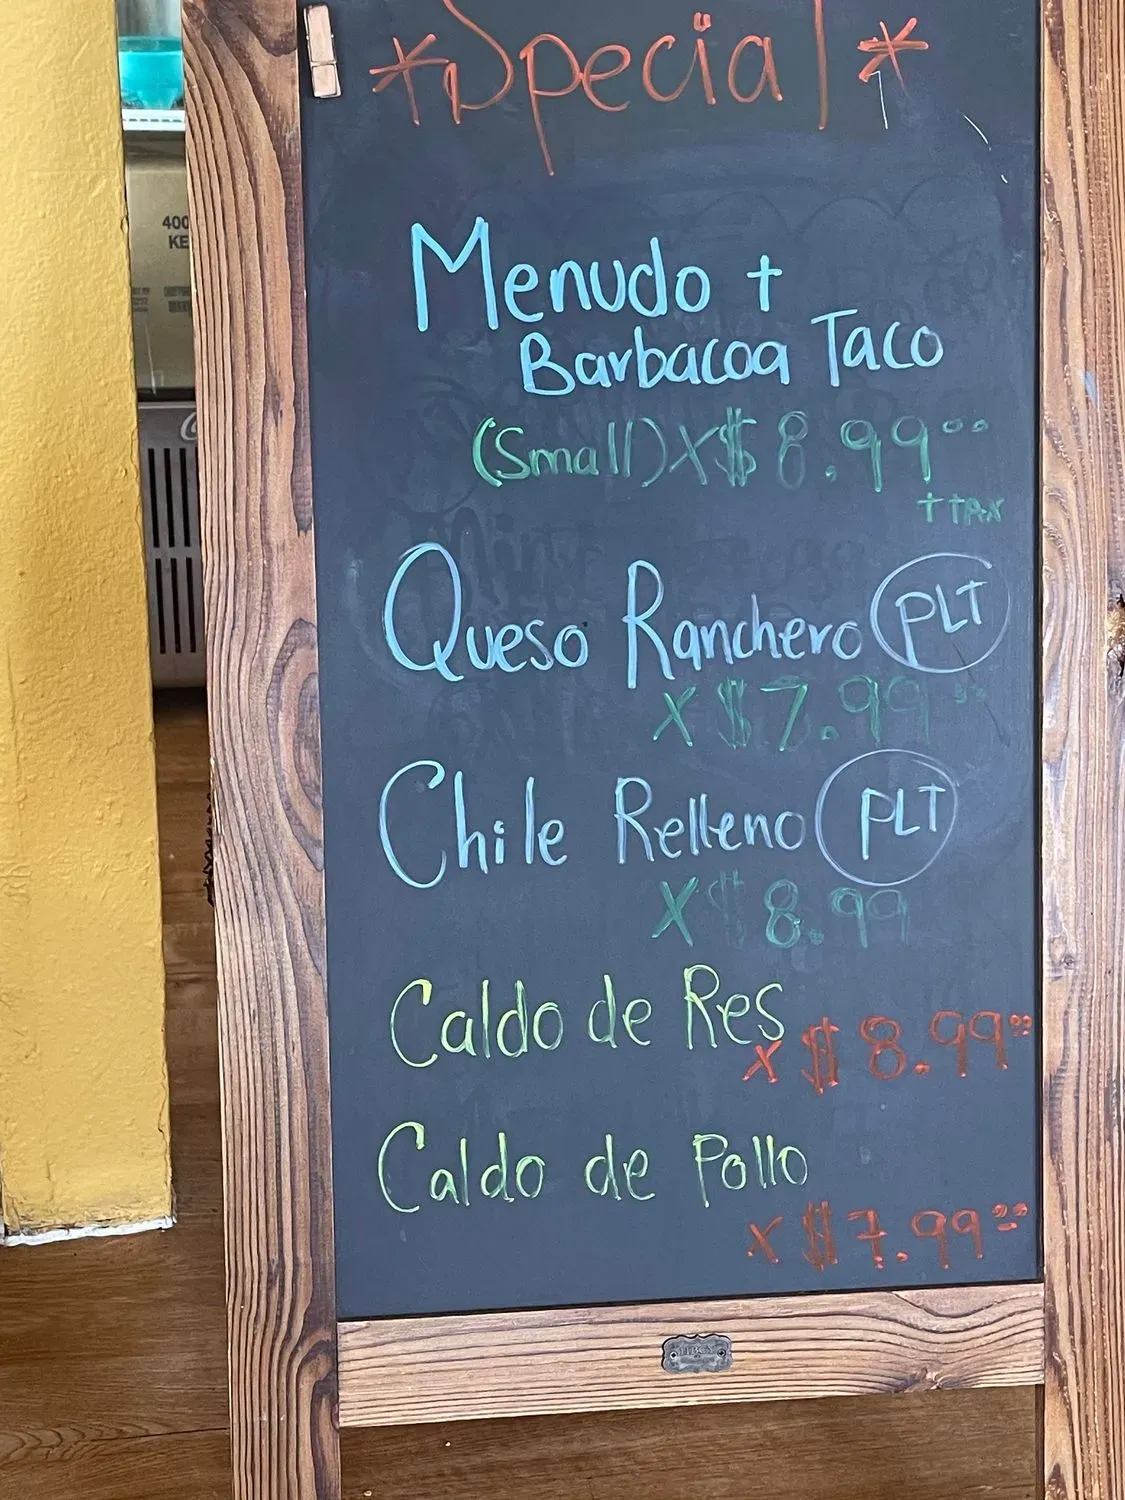 *Special*
400
KE
Menudo +
Barbacoa Taco
(Small) X $8.99°°
+ TAX
Queso Ranchero PLT
X $7.99
Chile Relleno PLT
X $8.99
Caldo de Res
X $8.99
Caldo de Pollo
X $7.99